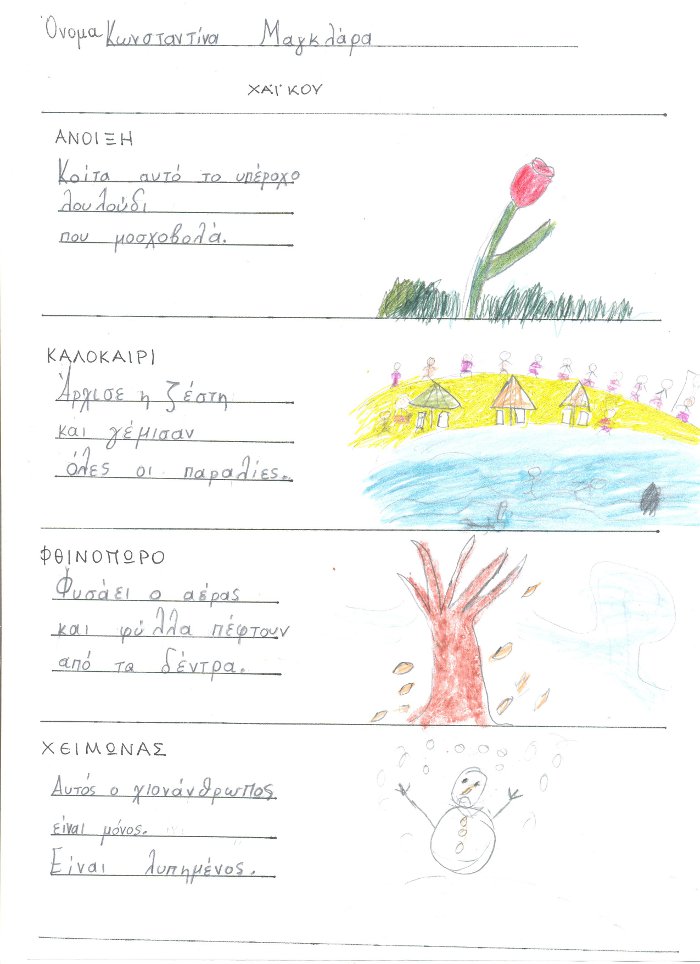 Όνομα Κωνσταντίνα Μαγκλάρα
ΧΑΪΚΟΥ
ΑΝΟΙΞΗ
Κοίτα αυτό το υπέροχο
λουλούδι
που μοσχοβολά.
ΚΑΛΟΚΑΙΡΙ
Άρχισε η ζέστη
και γέμισαν
όλες οι παραλίες.
ΦΘΙΝΟΠΩΡΟ
Φυσάει ο αέρας
και φύλλα πέφτουν
από τα δέντρα.
ΧΕΙΜΩΝΑΣ
Αυτός ο χιονάνθρωπος
είναι μόνος.
Είναι λυπημένος.